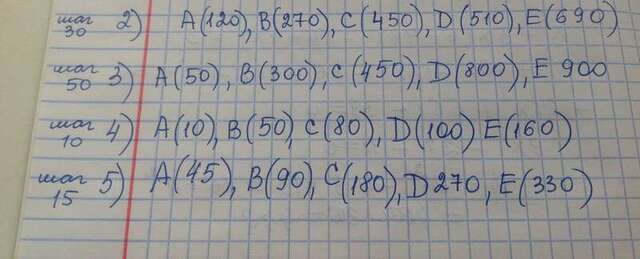 шаг 30 2) A(120), B(270), C(450), D(510), E(690)
шаг 50 3) A(50), B(300), C(450), D(800), E 900
шаг 10 4) A(10), B(50) C(80), D(100) E(160)
шаг 15 5) A(45), B(90), C(180), D 270, E(330)